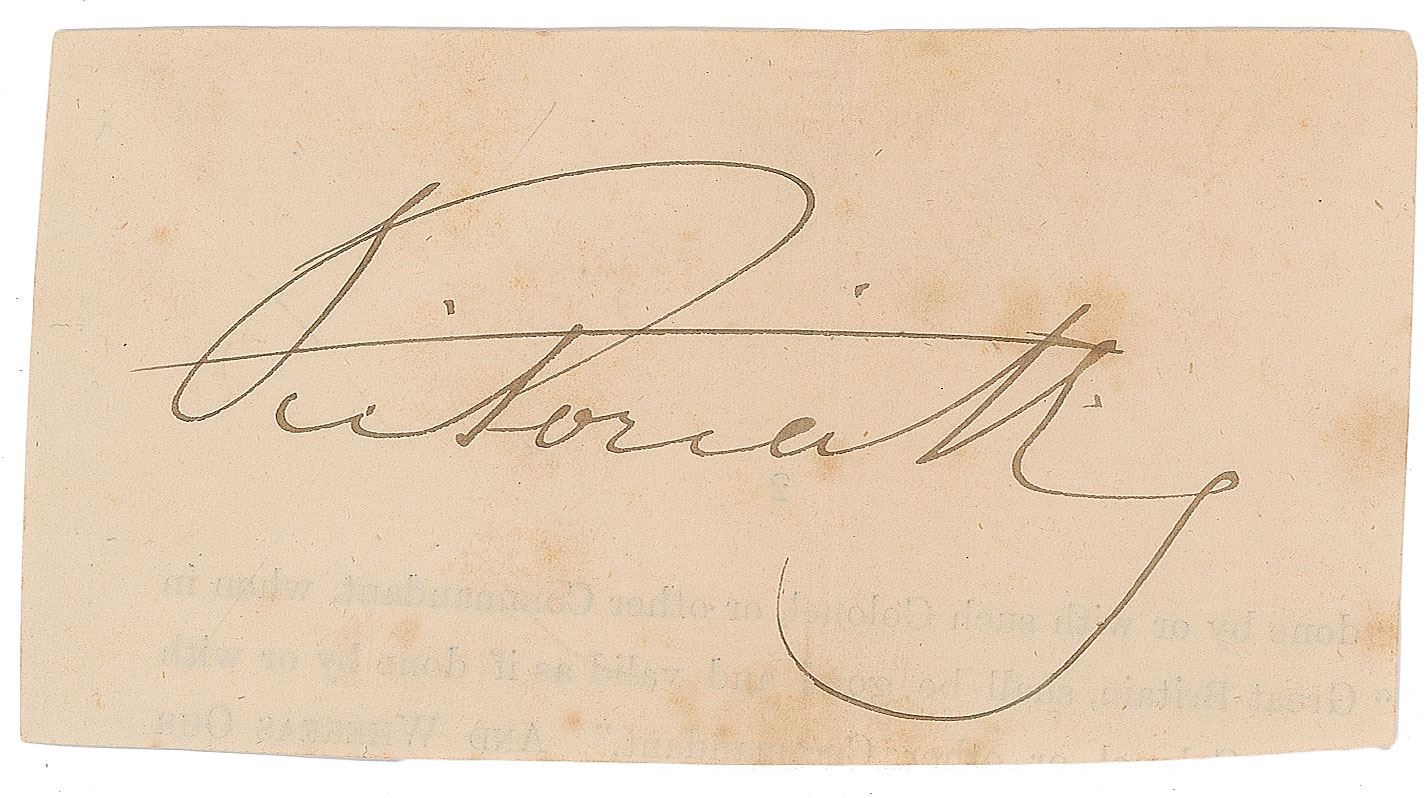 Victoria R
2
done by or with such Colonel, or other Commandant, when in
" Great Britain, shall be good and valid as if done by or with
or other Commandant." AND WHEREAS OUR